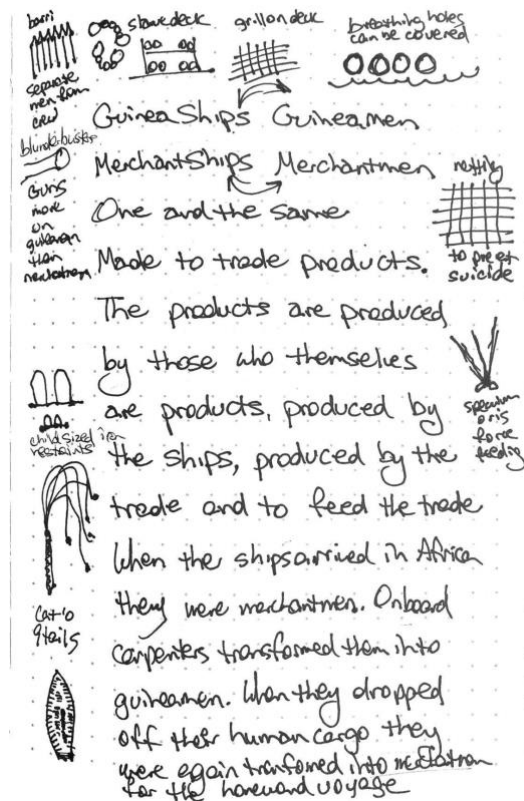 barri
separate
men from
crew
slavedeck
grill on deck
breathing holes
can be covered
blunderbuster
Guns
more
on
guineamen
than
netting
to prevent
suicide
Guinea Ships Guineamen
Merchant Ships Merchantmen
One and the same
Made to trade products.
The products are produced
by those who themselves
are products, produced by
the ships, produced by the
trade and to feed the trade
When the ships arrived in Africa
they were merchantmen. Onboard
carpenters transformed them into
guineamen. When they dropped
off their human cargo they
were again tranformed into
for the homeward voyage
child sized iron
restraints
speculum
oris
force
feeding
Cat o
9 tails